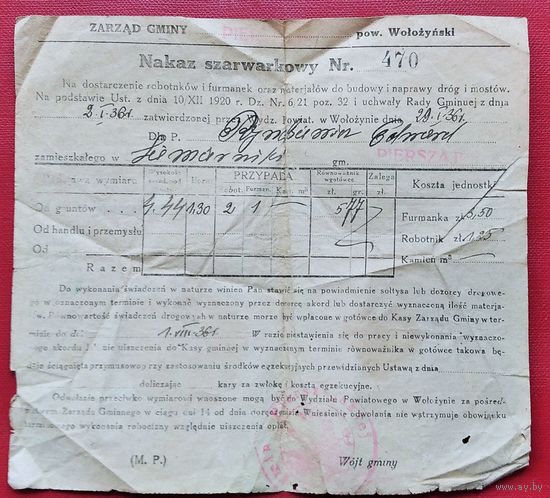 ZARZĄD GMINY PIERSZAJ pow. Wołożyński
Nakaz szarwarkowy Nr. 470
Na dostarczenie robotników i furmanek oraz materjałów do budowy i naprawy dróg i mostów.
Na podstawie Ust. z dnia 10/XII 1920 r. Dz. Nr. 6/21 poz. 32 i uchwały Rady Gminnej z dnia
2.I.36r. zatwierdzonej przez Wydz. Powiat. w Wołożynie dnia 29.I.36r.
Dla P.
zamieszkałego w gm. PIERSZAJ
wymiaru Wysokość Norm. PRZYPADA Równoważnik w gotówce Zalega Koszta jednostki
robot. Furman. Kam. m³ zł. gr. zł.
Od gruntów 4.44 1.30 2 1 5 77 Furmanka zł 3,50
Od handlu i przemysłu Robotnik zł 1.35
Od Kamień m³
Razem
Do wykonania świadczeń w naturze winien Pan stawić się na powiadmienie sołtysa lub dozorcy drogowe-
go w oznaczonym terminie i wykonać wyznaczony przez dozorcę akord lub dostarczyć wyznaczoną ilość materja-
łów. Równowartość świadczeń drogowych w naturze może być wpłacone w gotówce do Kasy Zarządu Gminy w ter-
minie do dnia 1.VIII-36r. W razie niestawienia się do pracy i niewykonania wyznaczo-
nego akordu nie uiszczenia do Kasy gminnej w wyznaczonym terminie równoważnika w gotówce takowa bę-
dzie ściągnięta przymusowo przy zastosowaniu środków egzekucyjnych przewidzianych Ustawą z dnia
doliczając kary za zwłokę i koszta egzekucyjne.
Odwołanie przeciwko wymiarowi wnoszone mogą być do Wydziału Powiatowego w Wołożynie za pośred-
nictwem Zarządu Gminnego w ciągu dni 14 od dnia doręczenia. Wniesienie odwołania nie wstrzymuje obowiązku
terminowego wykonania robocizny względnie uiszczenia opłat.
(M. P.) Wójt gminy
www.ay.by